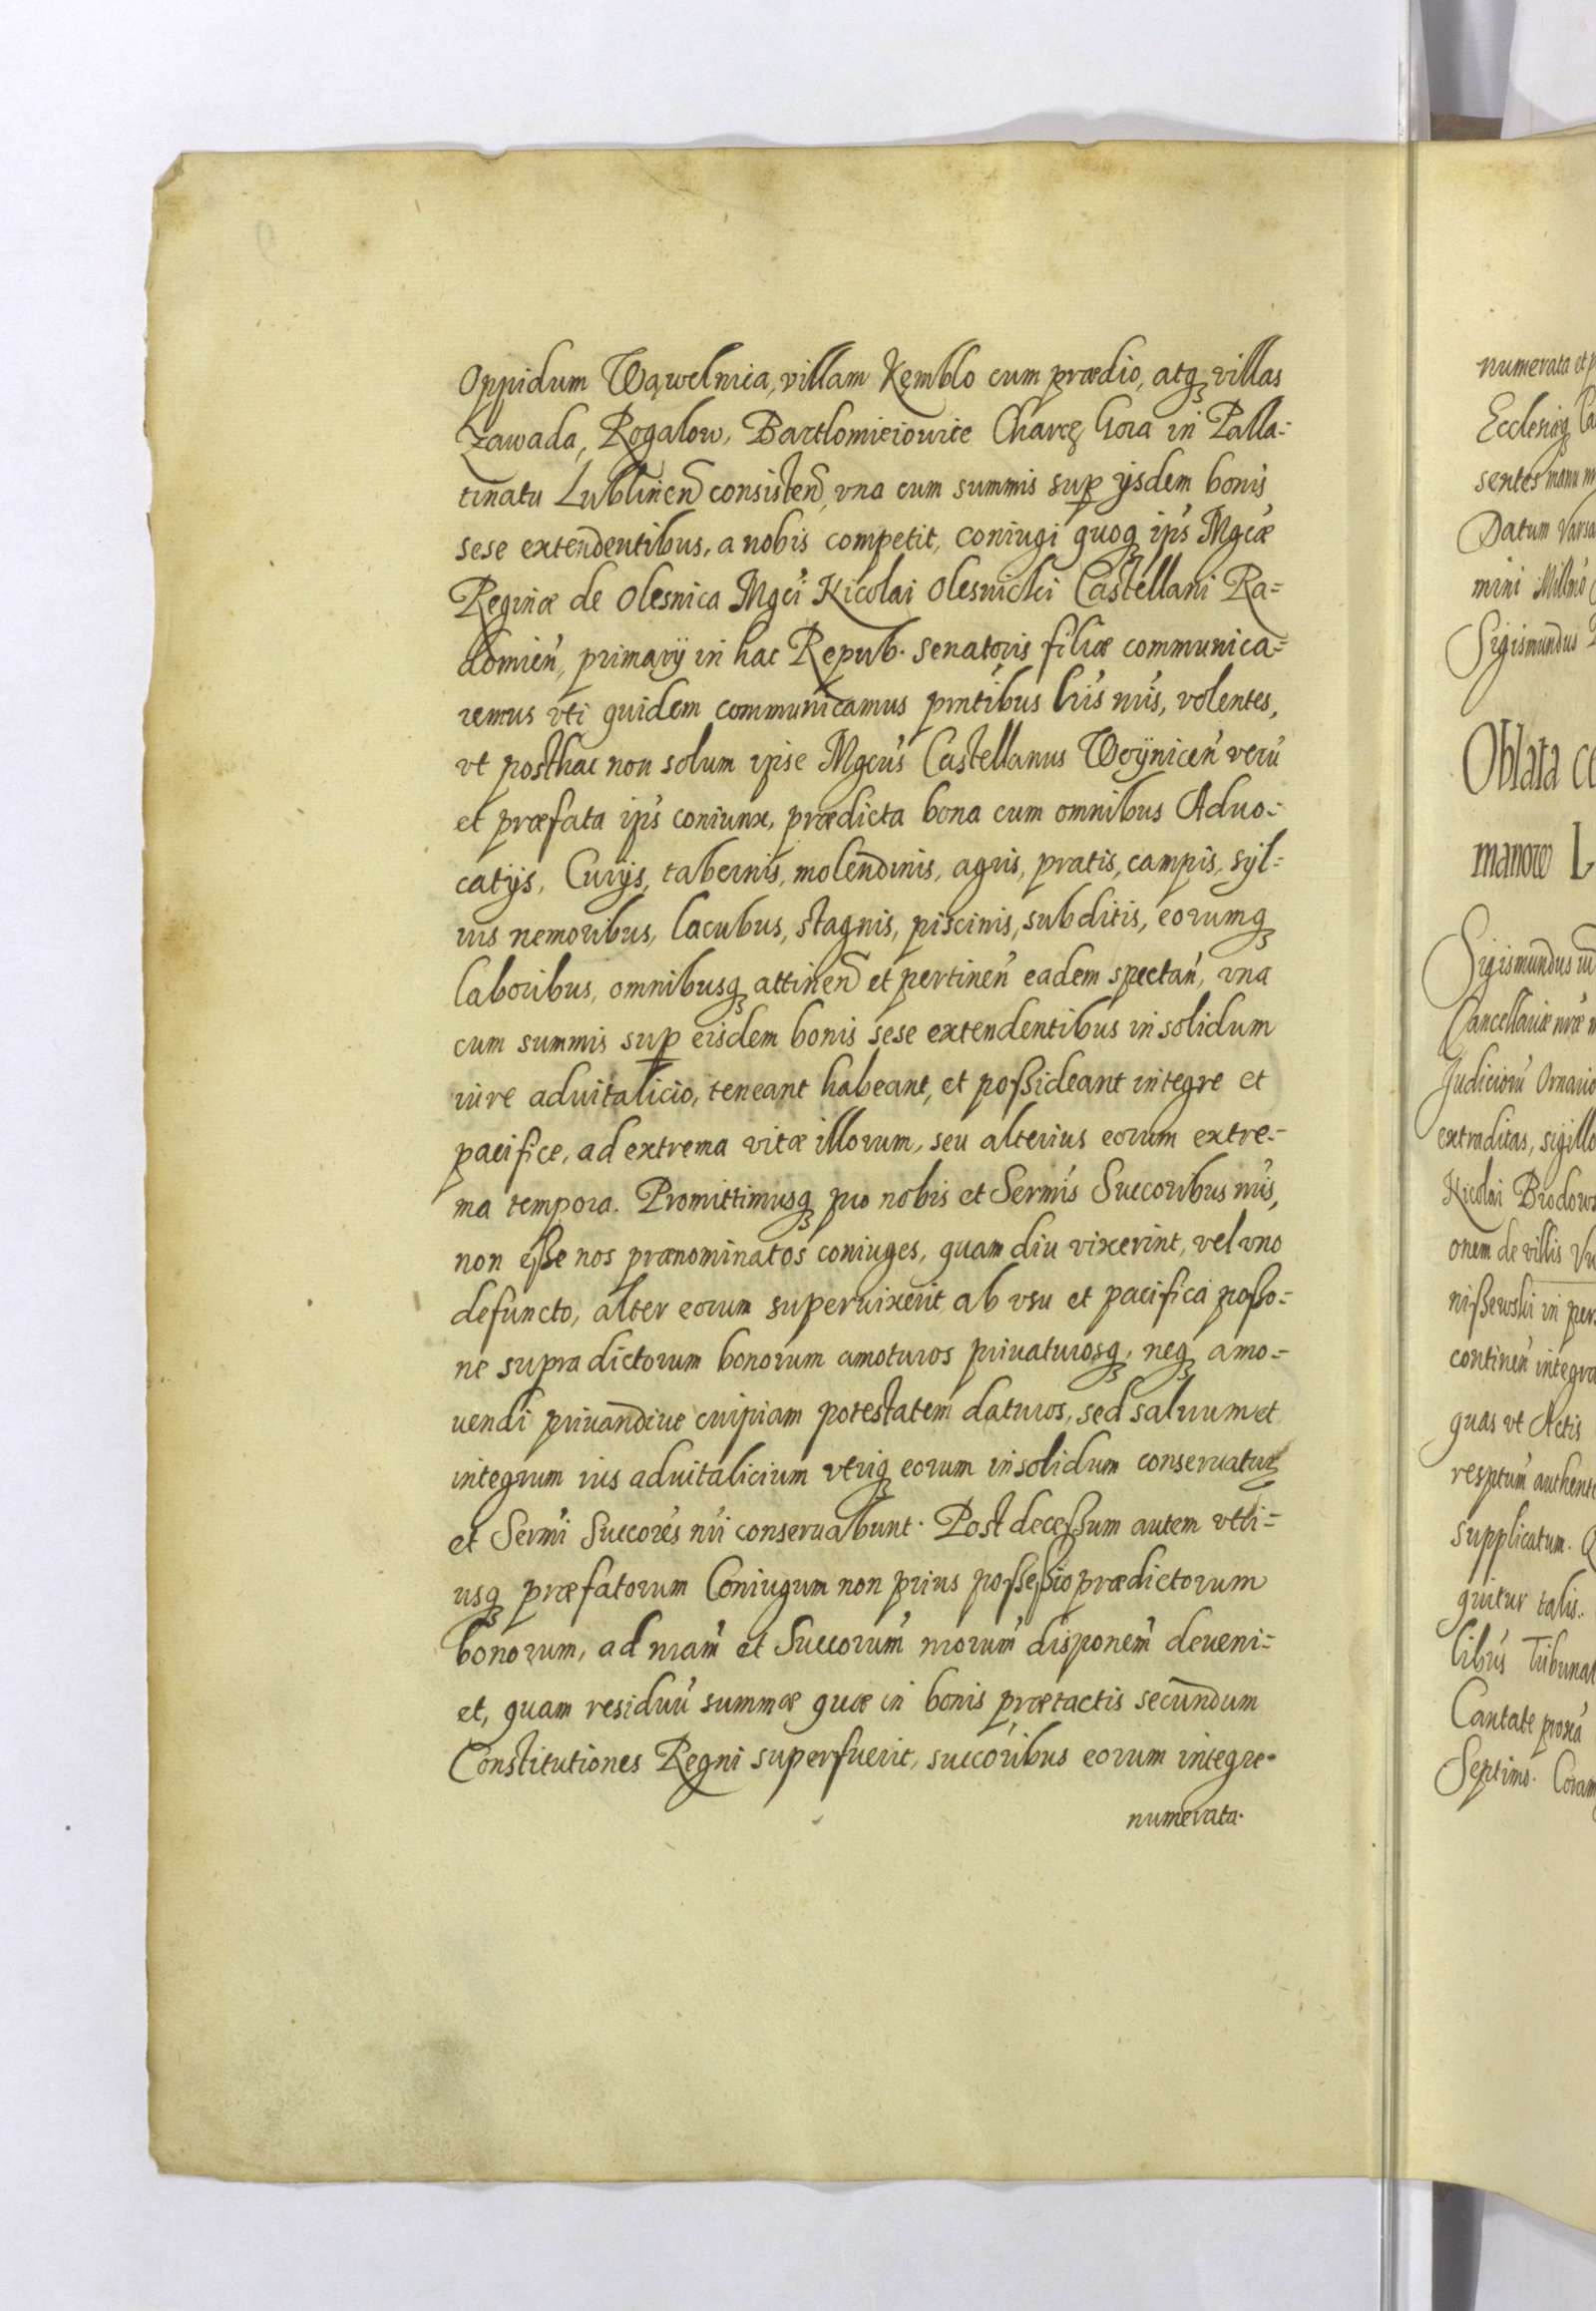 Oppidum Wąwelnica, villam Kęmblo cum prædio, atq; villas
Zawada, Rogalow, Bartlomieiowice Charcz Gora in Palla=
tinatu Lublinen consisten, vna cum summis sup ijsdem bonis
sese extendentibus, a nobis competit, coniugi quoq; ips Mgcæ
Reginæ de Olesnica Mgci Nicolai Olesnicki Castellani Ra=
domien, primarij in hac Repub. senatoris filiæ communica=
remus vti quidem communicamus pntibus lris nris, volentes,
vt posthac non solum ipse Mgcus Castellanus Woynicen veru
et præfata ips coniunx, prædicta bona cum omnibus Aduo=
catijs, Curijs, tabernis, molendinis, agris, pratis, campis, syl=
uis nemoribus, lacubus, stagnis, piscinis, subditis, eorumq;
laboribus, omnibusq; attinen et pertinen eadem spectan, vna
cum summis sup eisdem bonis sese extendentibus in solidum
iure aduitalicio, teneant habeant, et possideant integre et
pacifice, ad extrema vitæ illorum, seu alterius eorum extre=
ma tempora. Promittimusq; pro nobis et Sermis Succoribus nris,
non esse nos prænominatos coniuges, quam diu vixerint, vel vno
defuncto, alter eorum superuixerit, ab vsu et pacifica posso=
ne supradictorum bonorum amoturos priuaturosq;, neq; amo=
uendi priuandiue cuipiam potestatem daturos, sed saluum et
integrum ius aduitalicium vtriq; eorum in solidum conseruatur
et Sermi Succores nri conseruabunt. Post decessum autem vtri=
usq; præfatorum Coniugum non prius possessio prædictorum
bonorum, ad nram et Succorum nrorum disponem deueni=
et, quam residuu summæ quæ in bonis prætactis secundum
Constitutiones Regni superfuerit, succoribus eorum integre
numerata
numerata et
Ecclesiæq;
sentes manu
Datum Varsa
mini Millmo
Sigismundus
Oblata
manow
Sigismundus
Cancellariæ nræ
Judicioru
extraditas, sigillo
Nicolai Brodows
onem de villis
nissewski in per
continen integra
quas vt Actis
resptum authent
supplicatum.
quitur talis.
libus Tribunal
Cantate proxa
Septimo. Coram